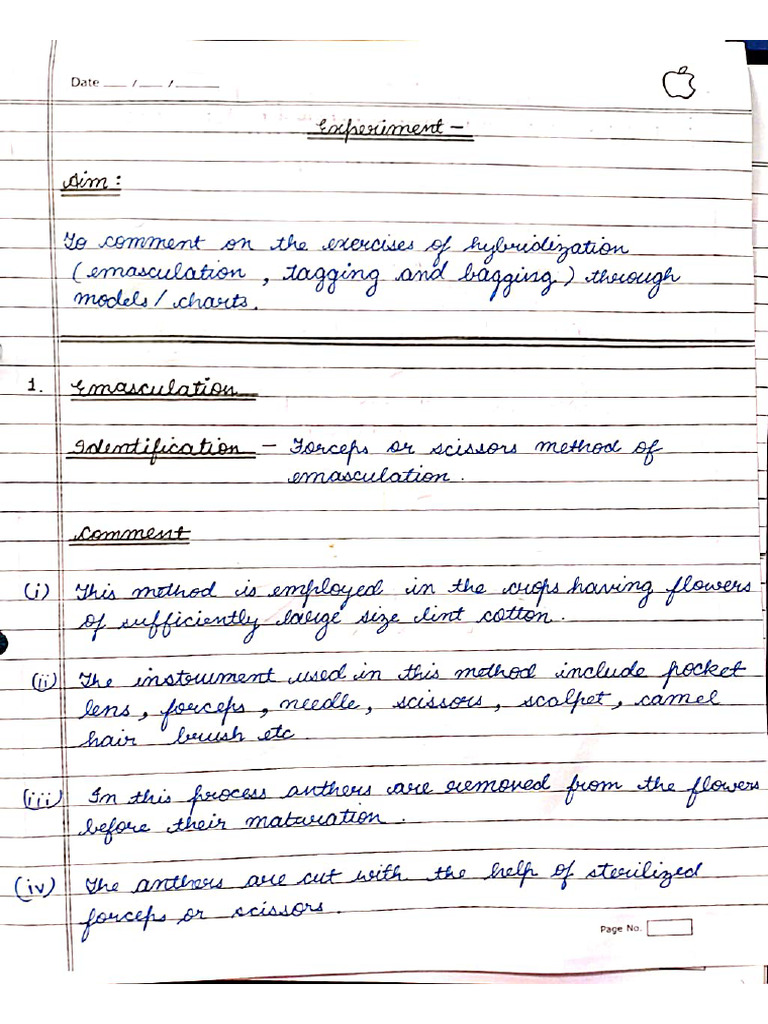 Date ___ / ___ / ______
Experiment -
Aim :
To comment on the exercises of hybridization
(emasculation , tagging and bagging) through
models / charts.
1. Emasculation
Identification - Forceps or scissors method of
emasculation.
Comment
(i) This method is employed in the crops having flowers
of sufficiently large size lint cotton.
(ii) The instrument used in this method include pocket
lens, forceps, needle, scissors, scalpet, camel
hair brush etc
(iii) In this process anthers are removed from the flowers
before their maturation.
(iv) The anthers are cut with the help of sterilized
forceps or scissors.
Page No.